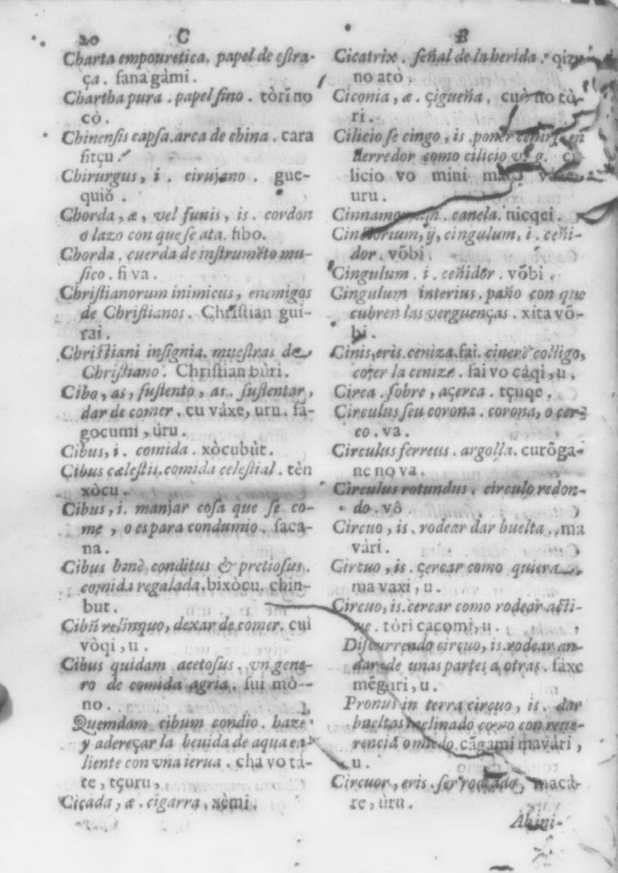 20 C B
Charta empouretica. papel de estra-
ça. sana gàmi.
Chartha pura. papel fino. tòrino
cò.
Chinensis capsa. arca de china. cara
fitçu.
Chirurgus, i. cirujano. gue-
quiŏ.
Chorda, æ, vel funis, is. cordon
o lazo con que se ata. fibo.
Chorda. cuerda de instrumēto mu-
sico. fi va.
Christianorum inimicus, enemigos
de Christianos. Christian gui-
rai.
Christiani insignia. muestras de
Christiano. Christian buri.
Cibo, as, sustento, as. sustentar,
dar de comer. cu vàxe, uru. fà-
gocumi, ùru.
Cibus, i. comida. xòcubùt.
Cibus cælestis. comida celestial. tèn
xòcu.
Cibus, i. manjar cosa que se co-
me, o es para condumio. saca-
na.
Cibus benè conditus & pretiosus.
comida regalada. bixòcu. chin-
but.
Cibū relinquo, dexar de comer. cui
vòqi, u.
Cibus quidam acetosus. vn gene-
ro de comida agria. sui mo-
no.
Quemdam cibum condio. haze
y adereçar la beuida de agua ca-
liente con vña ierua. cha vo tà-
te, tçuru,
Cicada, æ. cigarra, xèmi.
Cicatrix. señal de la herida. qizu
no atò,
Ciconia, æ. çigueña, cuŏ no tò-
ri.
Cilicio se cingo, is. poner
derredor como cilicio v. g. ci
licio vo mini
uru.
canela. nicqei.
Cinctorium, ij, cingulum, i. ceñi-
dor. vōbi.
Cingulum. i. ceñidor. vōbi.
Cingulum interius. paño con que
cubren las verguenças. xita vō-
bi.
Cinis, eris. ceniza. fai. cinerè colligo,
cojer la ceniza. fai vo càqi, u.
Circa. sobre, açerca. tçuqe,
Circulus seu corona. corona, o cer-
co. va.
Circulus ferreus. argolla. curŏga-
ne no va.
Circulus rotundus. circulo redon-
do. vŏ
Circuo, is. rodear dar buelta. ma
vàri.
Circuo, is. çercar como quiera
ma vaxi, u.
Circuo, is. cercar como rodear acti-
ve. tòri cacomi, u.
Discurrendo circuo, is. rodear an-
dar de unas partes a otras. fàxe
mēguri, u.
Pronus in terra circuo, is. dar
bueltas inclinado como con reue-
rencia o miedo. càgami mavàri,
u.
Circuor, eris. ser rodeado, macà-
re, ùru.
Abini-